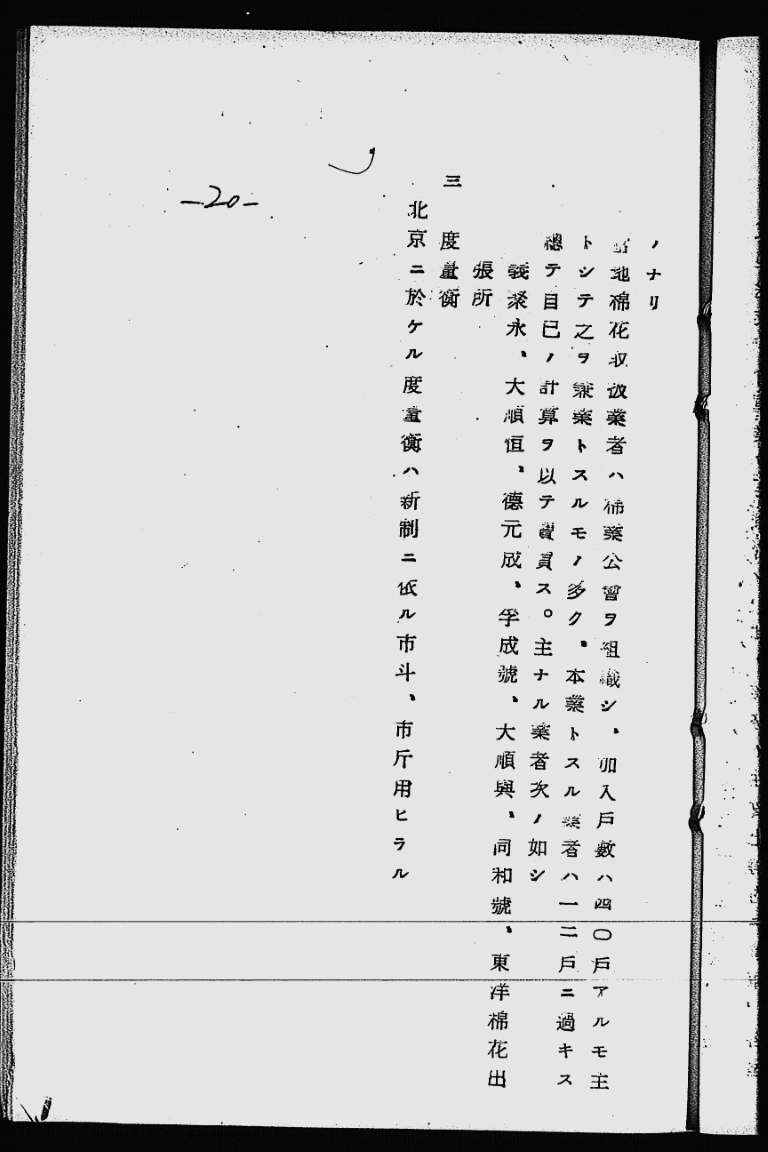 ノナリ
當地棉花取扱業者ハ棉業公會ヲ組織シ、加入戶數ハ四〇戶アルモ主
トシテ之ヲ兼業トスルモノ多ク、本業トスル業者ハ一二戶ニ過キス
總テ自己ノ計算ヲ以テ賣買ス。主ナル業者次ノ如シ
義聚永、大順恒、德元成、孚成號、大順興、同和號、東洋棉花出
張所
三 度量衡
北京ニ於ケル度量衡ハ新制ニ依ル市斗、市斤用ヒラル
-20-